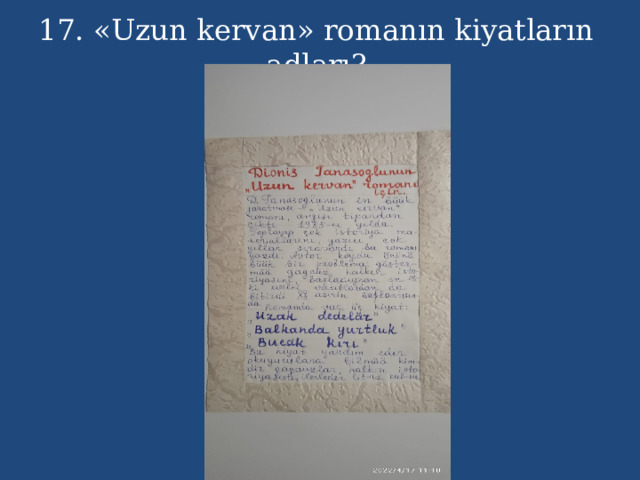 17. «Uzun kervan» romanın kiyatların
adları?
Dioniz Tanasoglunun
„Uzun kervan" romanı
için.
D. Tanasoglunun en büük
yaratması „Uzun kervan"
romanı, angısı tipardan
çıktı 1985-ci yılda.
Toplayıp çok istoriya ma-
teriallarını, yazıcı çok
yıllar sıravardı bu romanı
yazdı. Avtor koydu önünä
büük bir problema göster-
mää gagauz halkın isto-
riyasını, başlayıp
bitirdi XX asirin
da.
Romanın var üç kiyat:
„Uzak dedelär"
„Balkanda yurtluk"
„Bucak kırı"
Bu kiyat yardım eder
okuyuculara bilmää kim-
dir gagauzlar, halkın isto-
riyasını,
2022/4/17 11:10